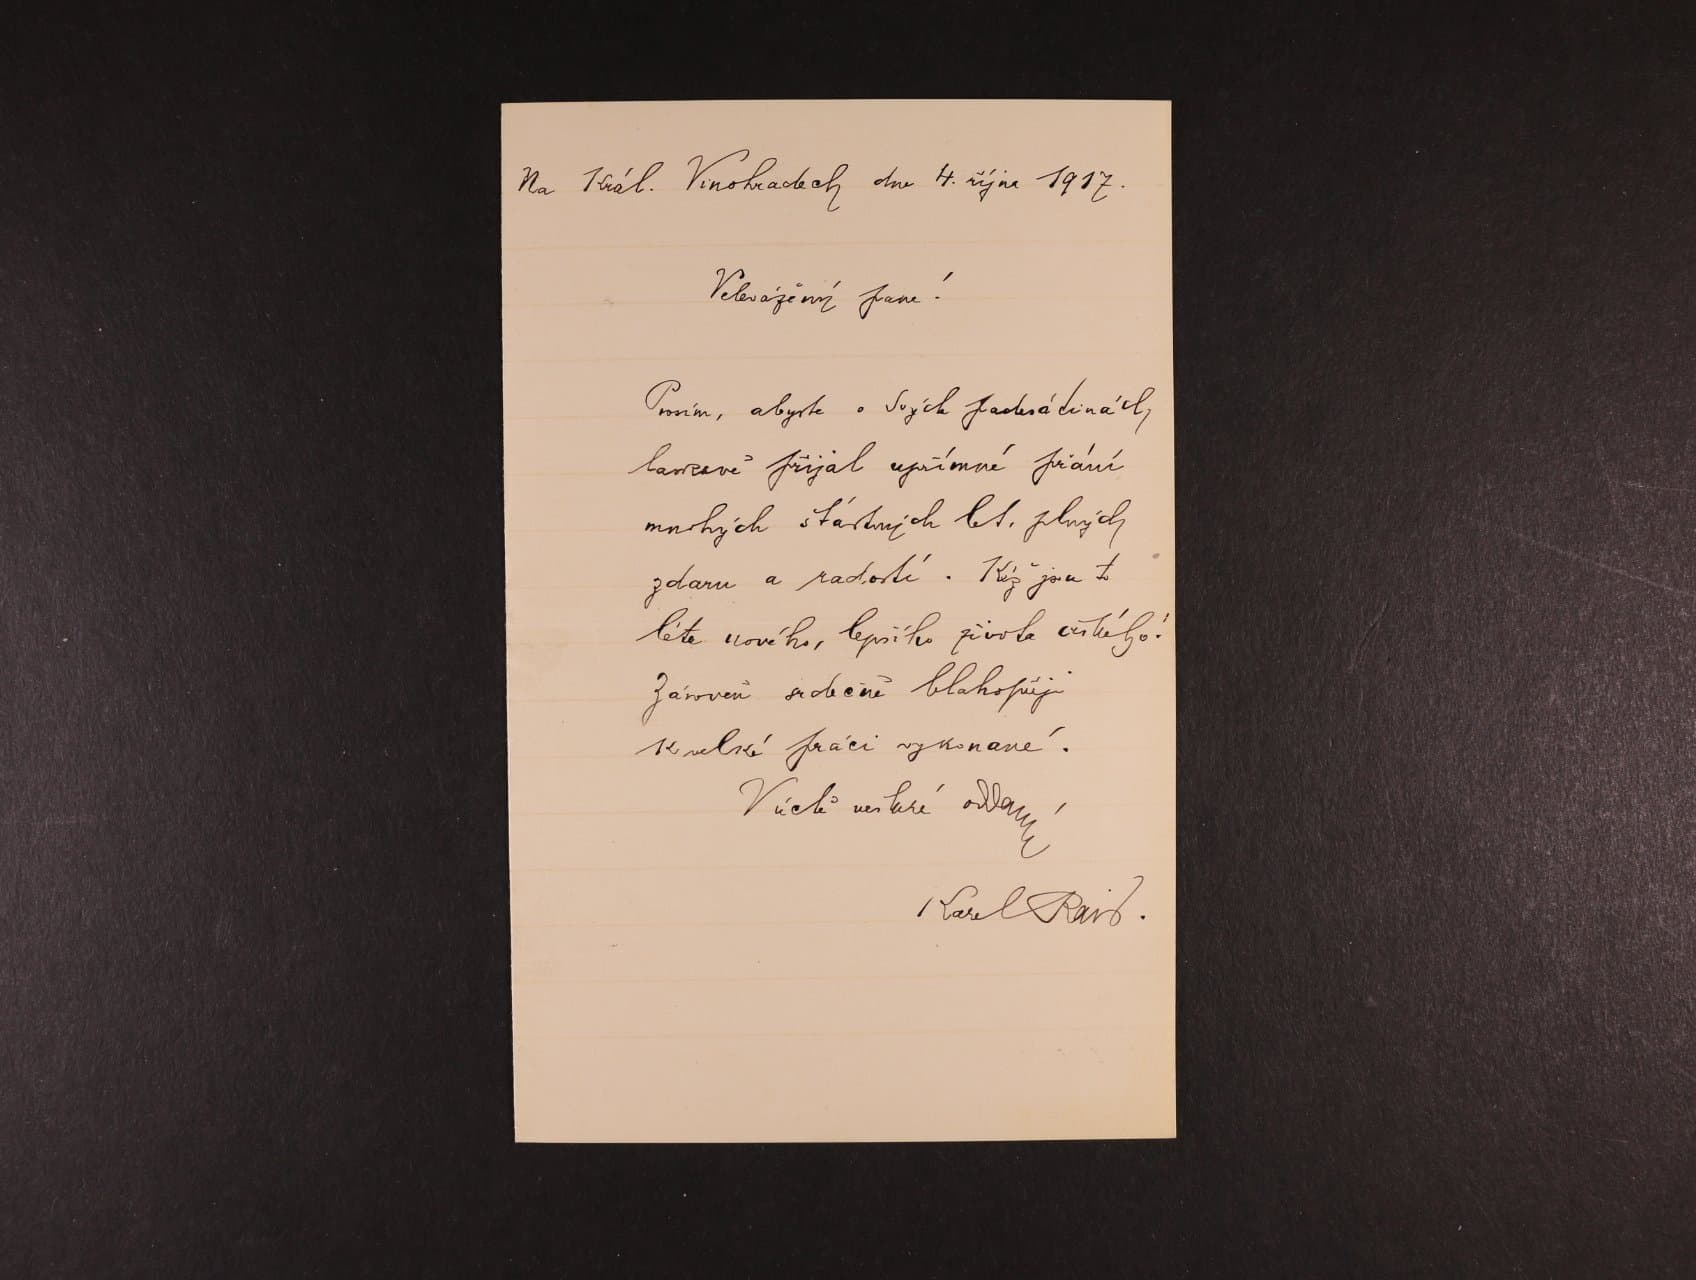 Na Král. Vinohradech dne 4. října 1917.
Velevážený pane!
Prosím, abyste o Svých padesátinách
laskavě přijal upřímné přání
mnohých šťastných let, plných
zdaru a radosti. Kéž jsou to
léta nového, lepšího života českého!
Zároveň srdečně blahopřeji
k velké práci vykonané.
V úctě veškeré oddaný
Karel Rais.